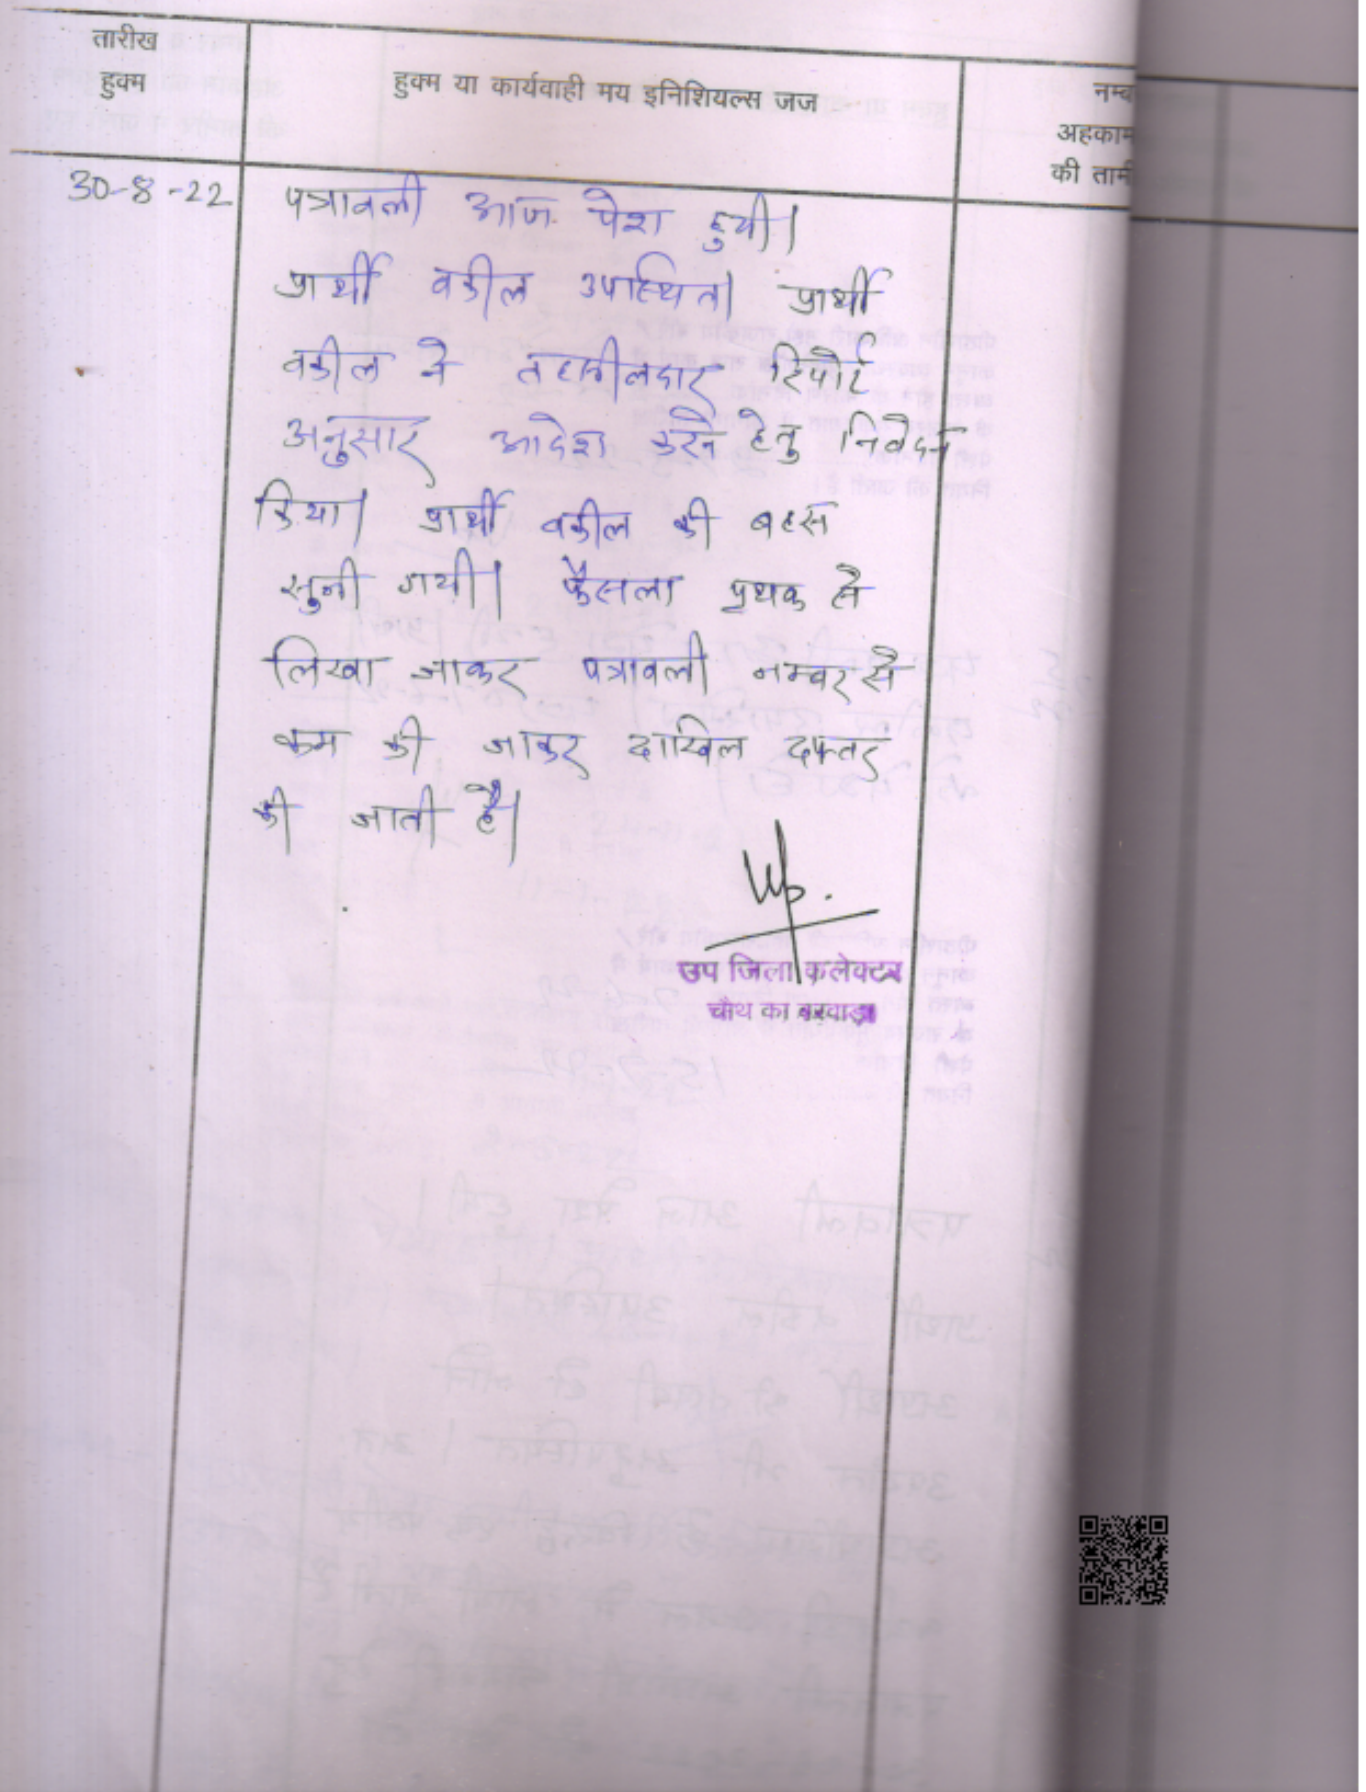 तारीख
हुक्म
हुक्म या कार्यवाही मय इनिशियल्स जज
नम्ब
अहकाम
की तामी
30-8-22
पत्रावली आज पेश हुयी।
प्रार्थी वकील उपस्थित। प्रार्थी
वकील ने तहसीलदार रिपोर्ट
अनुसार आदेश करने हेतु निवेदन
किया। प्रार्थी वकील की बहस
सुनी गयी। फैसला प्रथक से
लिखा जाकर पत्रावली नम्बर से
कम की जाकर दाखिल दफ्तर
की जाती है।
उप जिला कलेक्टर
चौथ का बरवाड़ा